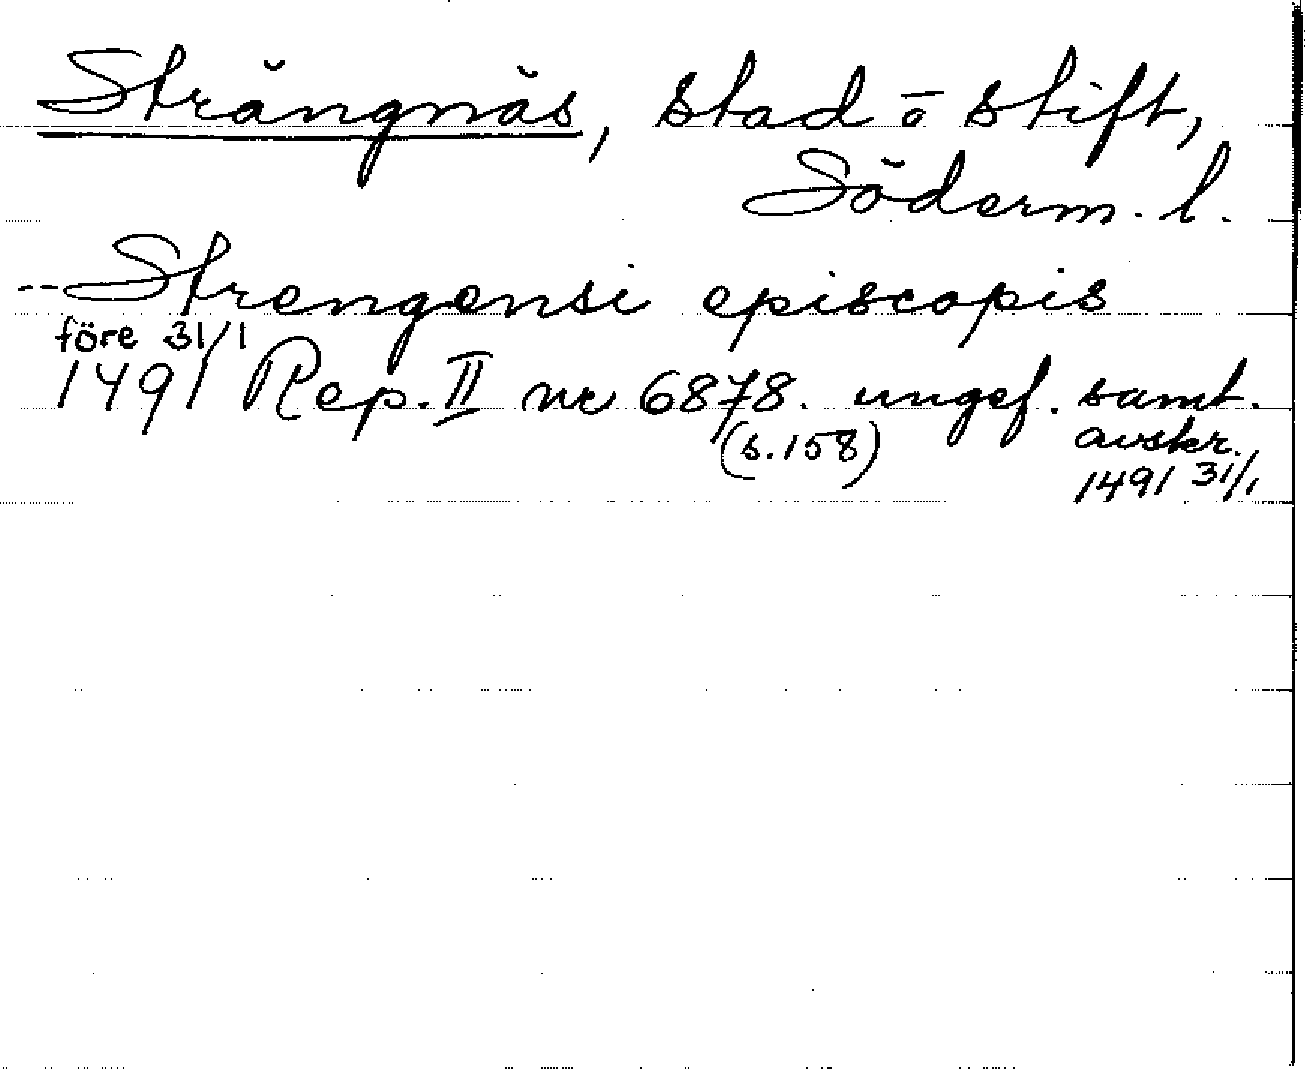 Strängnäs, stad o stift,
Söderm. l.
--Strengensi episcopis
före 31/1
1491 Rep. II nr 6878. ungef. samt.
(s. 158) avskr.
1491 31/1